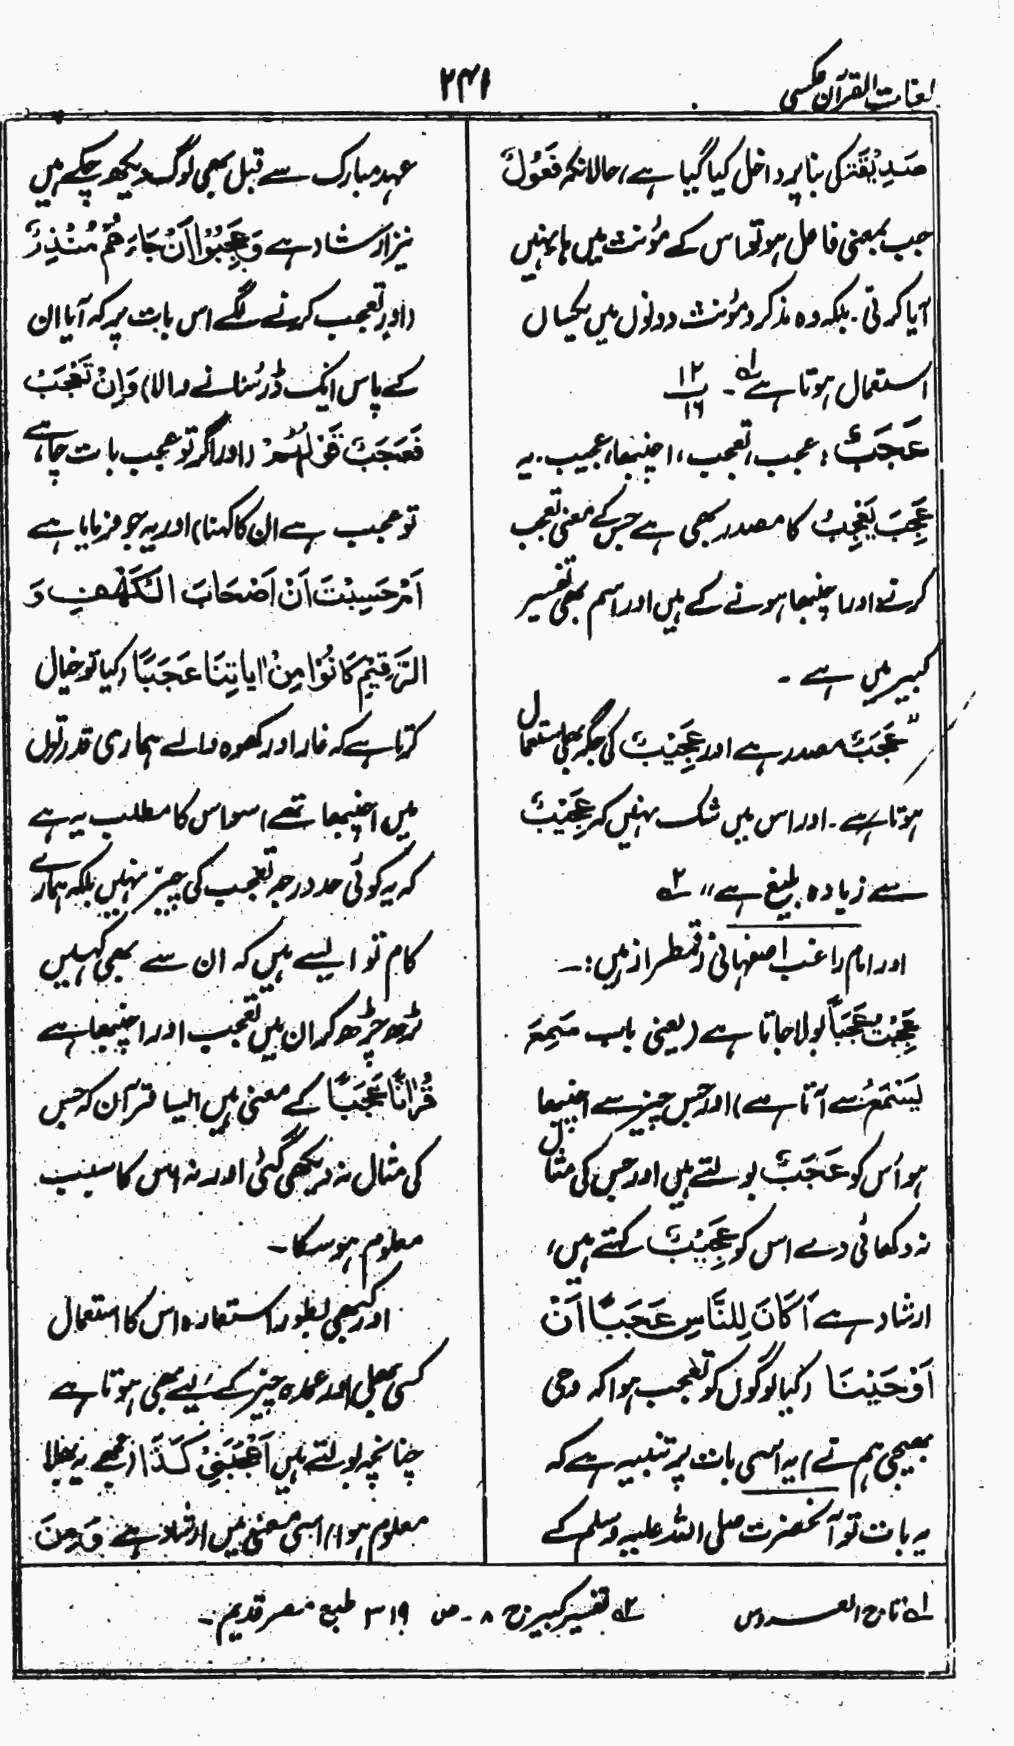 لغات القرآن عکسی
۲۴۱
صَدِیْقَۃٌ کی بنا پر داخل کیا گیا ہے، حالانکہ فَعُوْلٌ
جب بمعنی فاعل ہو تو اس کے مؤنث میں ہاء نہیں
آیا کرتی۔ بلکہ وہ مذکر و مؤنث دونوں میں یکساں
استعمال ہوتا ہے لہ ۔ ۱۲/۱۶
عَجَبٌ : عجب، تعجب، اچنبھا، عجیب۔ یہ
عَجِبَ یَعْجَبُ کا مصدر بھی ہے جس کے معنی تعجب
کرنے اور اچنبھا ہونے کے ہیں اور اسم بھی تفسیر
کبیر میں ہے ۔
”عَجَبٌ مصدر ہے اور عَجِیْبٌ کی جگہ بھی استعمال
ہوتا ہے۔ اور اس میں شک نہیں کہ عَجِیْبٌ
سے زیادہ بلیغ ہے“ ۲ہ
اور امام راغب اصفہانی رقمطراز ہیں:۔
عَجِبْتُ عَجَبًا بولا جاتا ہے (یعنی باب سَمِعَ
یَسْمَعُ سے آتا ہے) اور جس چیز سے اچنبھا
ہو اُس کو عَجَبٌ بولتے ہیں اور جس کی مثال
نہ دکھائی دے اس کو عَجِیْبٌ کہتے ہیں،
ارشاد ہے اَکَانَ لِلنَّاسِ عَجَبًا اَنْ
اَوْحَیْنَا (کیا لوگوں کو تعجب ہوا کہ وحی
بھیجی ہم نے) یہ اسی بات پر تنبیہ ہے کہ
یہ بات تو آنحضرت صلی اللہ علیہ وسلم کے
عہد مبارک سے قبل بھی لوگ دیکھ چکے ہیں
نیز ارشاد ہے وَعَجِبُوْا اَنْ جَاءَھُمْ مُنْذِرٌ
(اور تعجب کرنے لگے اس بات پر کہ آیا ان
کے پاس ایک ڈر سُنانے والا) وَاِنْ تَعْجَبْ
فَعَجَبٌ قَوْلُھُمْ (اور اگر تو عجب بات چاہے
تو عجب ہے ان کا کہنا) اور یہ جو فرمایا ہے
اَمْ حَسِبْتَ اَنَّ اَصْحَابَ الْکَھْفِ وَ
الرَّقِیْمِ کَانُوْا مِنْ اٰیَاتِنَا عَجَبًا (کیا تو خیال
کرتا ہے کہ غار اور کھوہ والے ہماری قدرتوں
میں اچنبھا تھے) سو اس کا مطلب یہ ہے
کہ یہ کوئی حد درجہ تعجب کی چیز نہیں بلکہ ہمارے
کام تو ایسے ہیں کہ ان سے بھی کہیں
بڑھ چڑھ کر ان میں تعجب اور اچنبھا ہے
قُرْاٰنًا عَجَبًا کے معنی ہیں ایسا قرآن کہ جس
کی مثال نہ دیکھی گئی اور نہ اس کا سبب
معلوم ہو سکا۔
اور کبھی بطور استعارہ اس کا استعمال
کسی بھلی اور عمدہ چیز کے لئے بھی ہوتا ہے
چنانچہ بولتے ہیں اَعْجَبَنِیْ کَذَا (مجھے یہ بھلا
معلوم ہوا) اسی معنیٰ میں ارشاد ہے وَمِنَ
لہ تاج العروس ۲ہ تفسیر کبیر ج ۸۔ ص ۳۱۹ طبع مصر قدیم۔